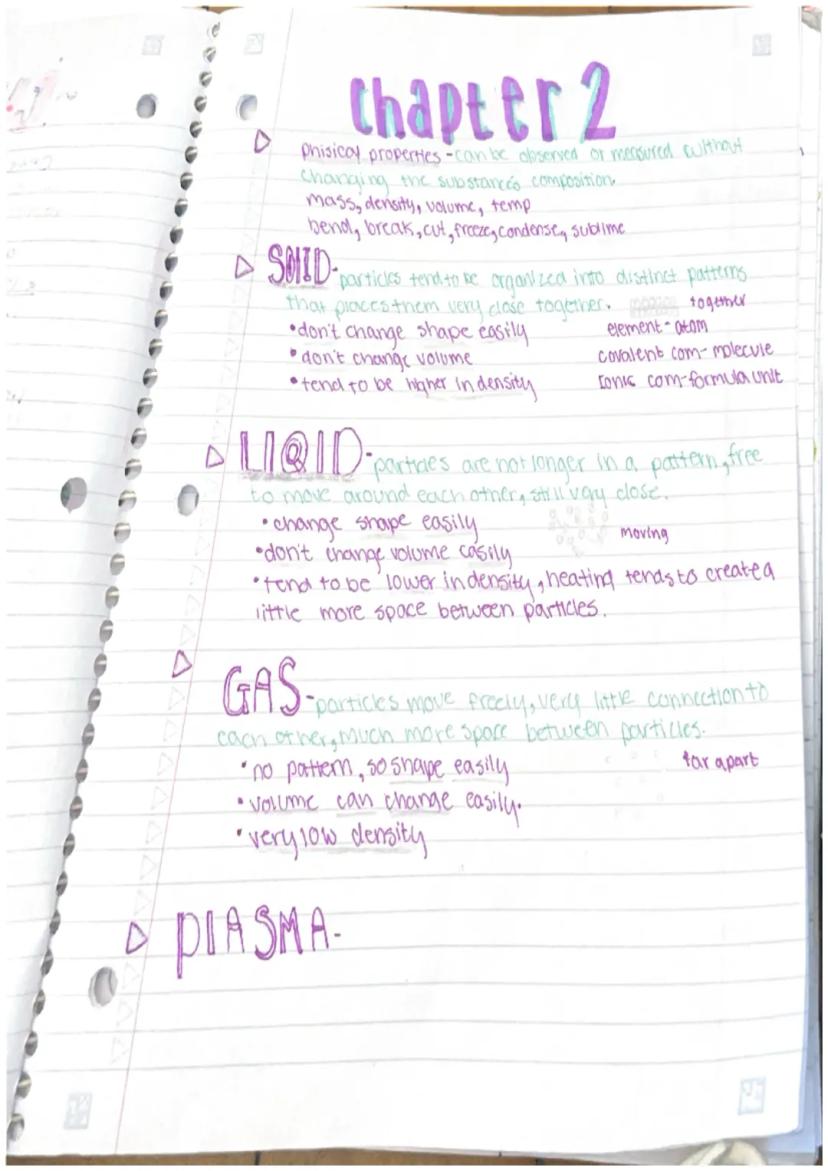 Chapter 2
phisical properties - can be observed or measured without
changing the substance's composition.
mass, density, volume, temp
bend, break, cut, freeze, condense, sublime
SOlID - particles tend to be organized into distinct patterns
that places them very close together. together
•don't change shape easily element - atom
•don't change volume covalent com - molecule
•tend to be higher in density Ionic com - formula unit
LIQID - particles are not longer in a pattern, free
to move around each other, still very close.
•change shape easily
moving
•don't change volume easily
•tend to be lower in density, heating tends to created
little more space between particles.
GAS - particles move freely, very little connection to
each other, much more space between particles.
•no pattern, so shape easily far apart
•volume can change easily.
•very low density
PlASMA -